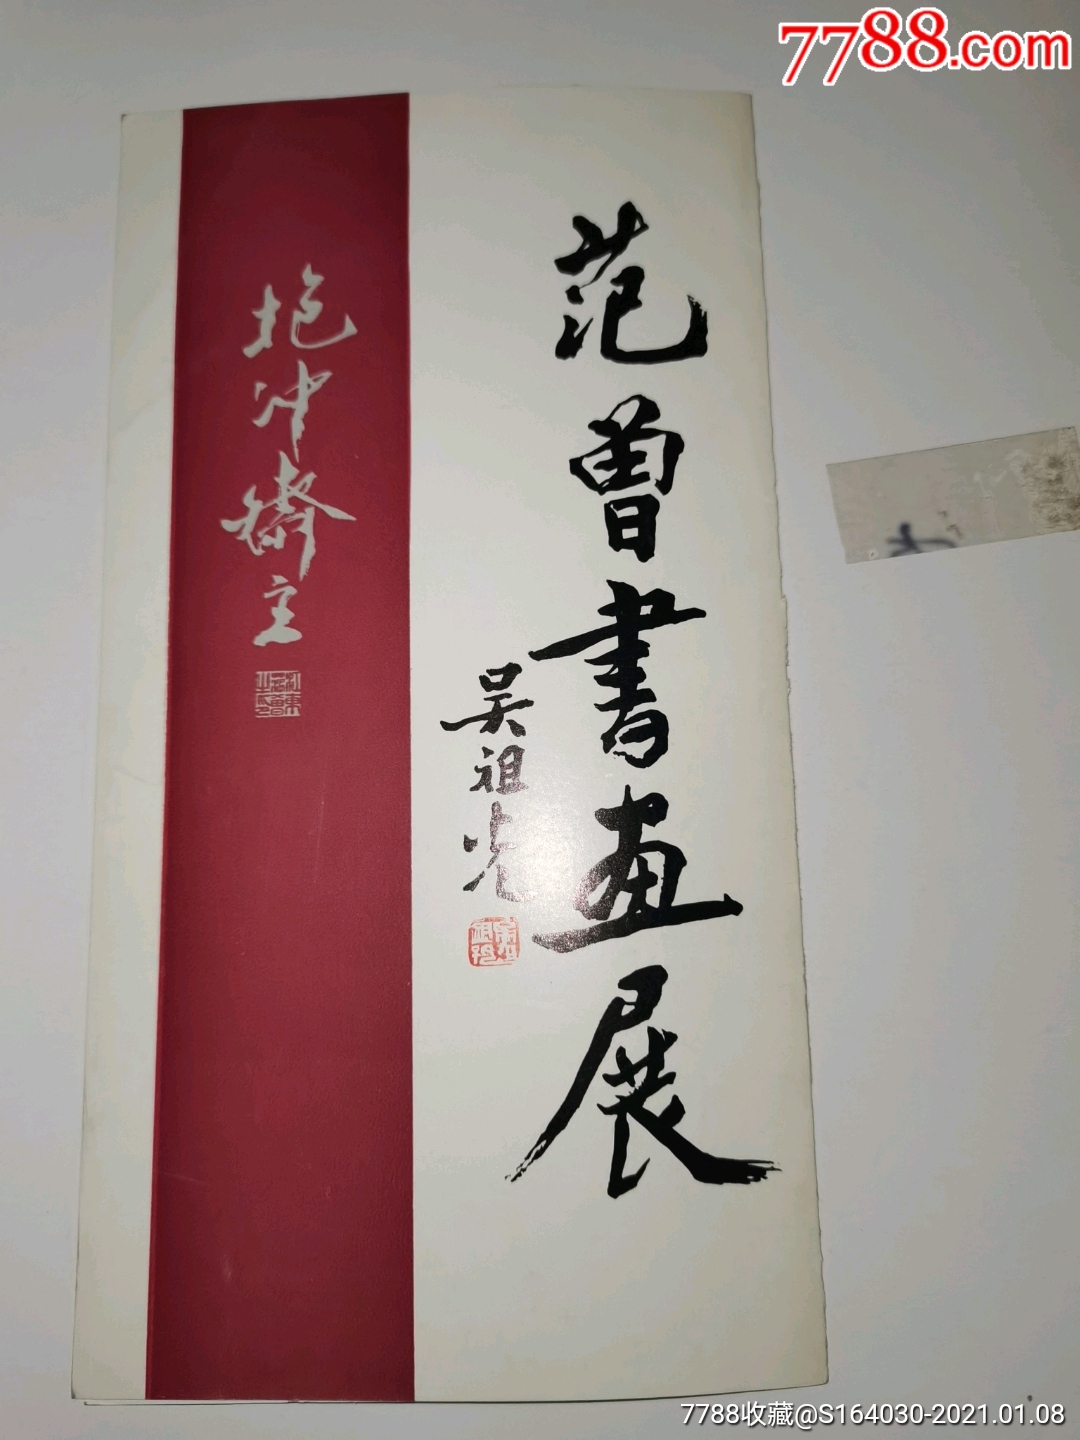 7788.com
范曾書画展
吴祖光
抱冲斋主
7788收藏@S164030-2021.01.08